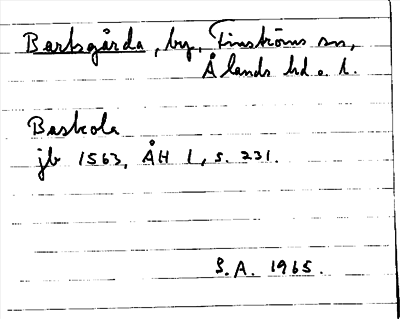 Bartsgårda, by, Finströms sn,
Ålands hd o. l.
Baskola
jb 1563, ÅH 1, s. 231.
S.A. 1965.